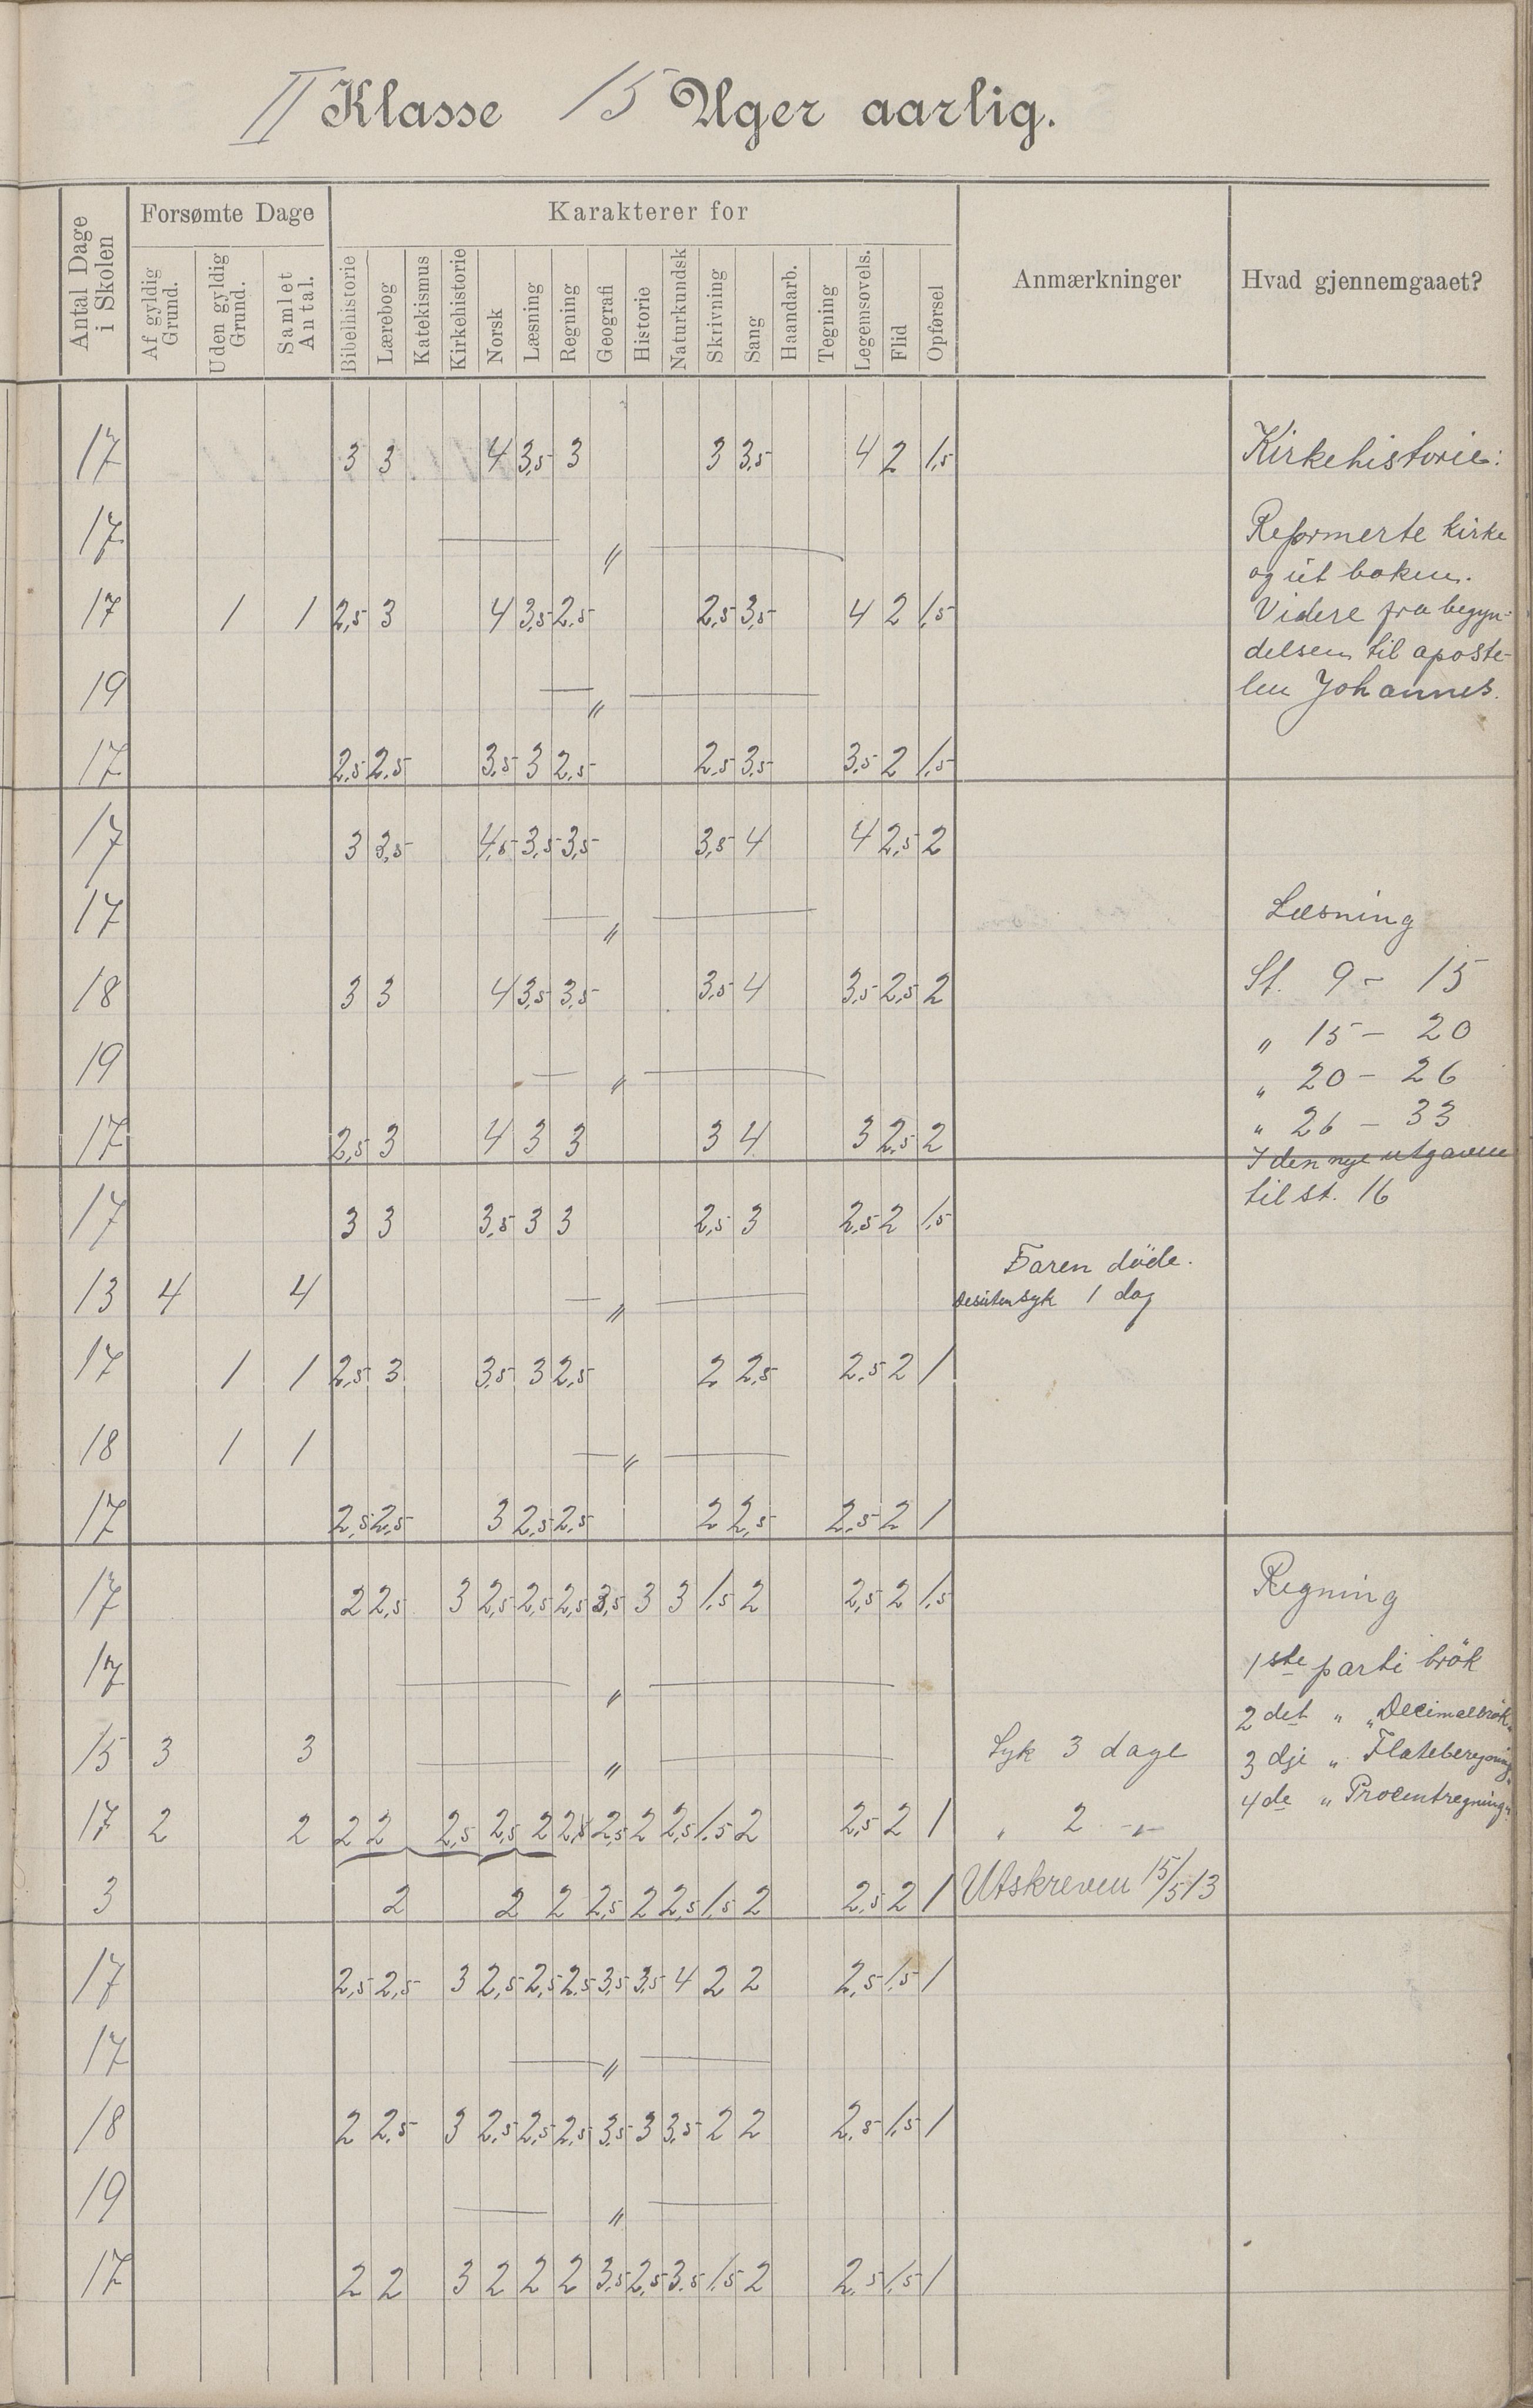 II Klasse 15 Uger aarlig.
Antal Dage i Skolen
Forsømte Dage
Af gyldig Grund.
Uden gyldig Grund.
Samlet Antal.
Karakterer for
Bibelhistorie
Lærebog
Katekismus
Kirkehistorie
Norsk
Læsning
Regning
Geografi
Historie
Naturkundsk
Skrivning
Sang
Haandarb.
Tegning
Legemsøvels.
Flid
Opførsel
Anmærkninger
Hvad gjennemgaaet?
17 3 3 4 3,5 3 3 3,5 4 2 1,5 Kirkehistorie:
17 — " — Reformerte kirke
og ut boken.
17 1 1 2,5 3 4 3,5 2,5 2,5 3,5 4 2 1,5 Videre fra begyn-
delsen til aposte-
19 — " — len Johannes.
17 2,5 2,5 3,5 3 2,5 2,5 3,5 3,5 2 1,5
17 3 3,5 4,5 3,5 3,5 3,5 4 4 2,5 2
17 — " — Læsning
18 3 3 4 3,5 3,5 3,5 4 3,5 2,5 2 St. 9 - 15
" 15 - 20
19 — " — " 20 - 26
17 2,5 3 4 3 3 3 4 3 2,5 2 " 26 - 33
I den nye utgaven
17 3 3 3,5 3 3 2,5 3 2,5 2 1,5 til st. 16
Faren døde.
13 4 4 — " — desuten syk 1 dag
17 1 1 2,5 3 3,5 3 2,5 2 2,5 2,5 2 1
18 1 1 — " —
17 2,5 2,5 3 2,5 2,5 2 2,5 2,5 2 1
17 2 2,5 3 2,5 2,5 2,5 3,5 3 3 1,5 2 2,5 2 1,5 Regning
17 — " — 1ste parti brök
2det " "Decimalbrök"
15 3 3 — " — Syk 3 dage 3dje " Flateberegning"
17 2 2 2 2 2,5 2,5 2 2 2,5 2 2,5 1,5 2 2,5 2 1 " 2 -"- 4de " Procentregning"
3 2 2 2 2,5 2 2,5 1,5 2 2,5 2 1 Utskreven 15/5 13
17 2,5 2,5 3 2,5 2,5 2,5 3,5 3,5 4 2 2 2,5 1,5 1
17 — " —
18 2 2,5 3 2,5 2,5 2,5 3,5 3 3,5 2 2 2,5 1,5 1
19 — " —
17 2 2 3 2 2 2 3,5 2,5 3,5 1,5 2 2,5 1,5 1